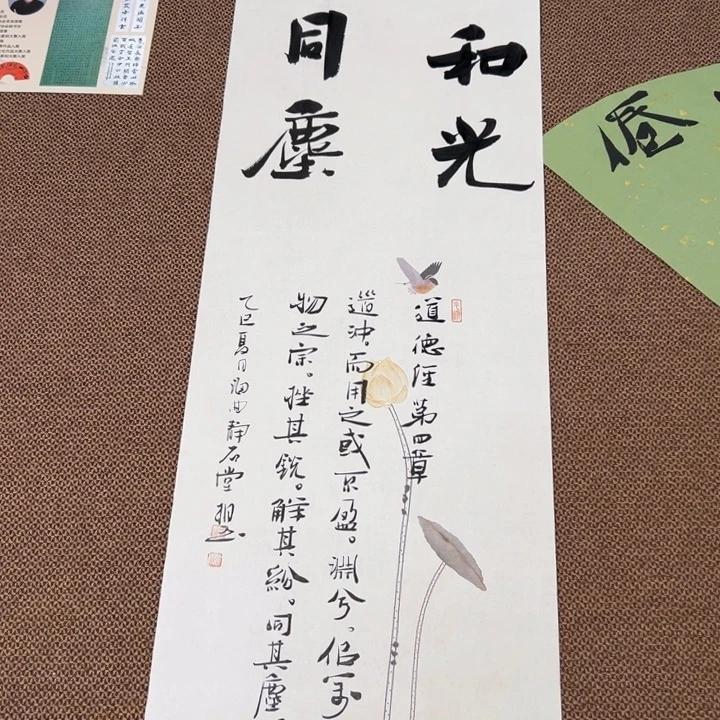 和光
同塵
道德經第四章
道沖,而用之或不盈。淵兮、似萬
物之宗。挫其銳。解其紛。同其塵
乙巳夏日海曲靜石堂